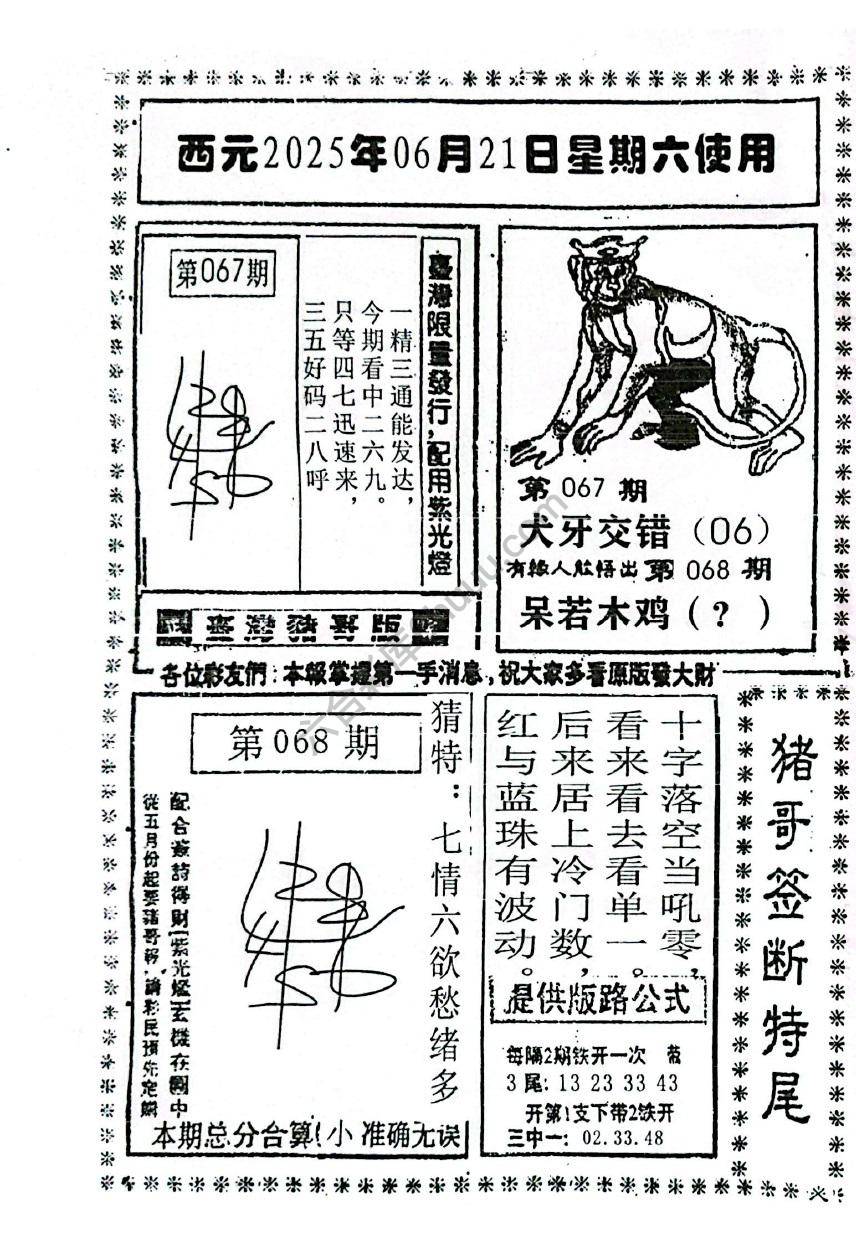 西元2025年06月21日星期六使用
第067期
一精三通能发达，
今期看中二六九。
只等四七迅速来，
三五好码二八呼
臺灣限量發行，配用紫光燈
第 067 期
犬牙交错（06）
有緣人能悟出 第 068 期
呆若木鸡（？）
各位彩友們：本報掌握第一手消息，祝大家多看原版發大財
第 068 期
猜特：七情六欲愁绪多
配合簽詩得財（紫光燈）玄機在圖中
從五月份起要豬哥報，請彩民預先定購
本期总分合算！小 准确无误
十字落空当吼零，
看来看去看单一。
后来居上冷门数，
红与蓝珠有波动。
提供版路公式
每隔2期铁开一次
3尾：13 23 33 43
开第1支下带2铁开
三中一：02.33.48
猪哥签断特尾